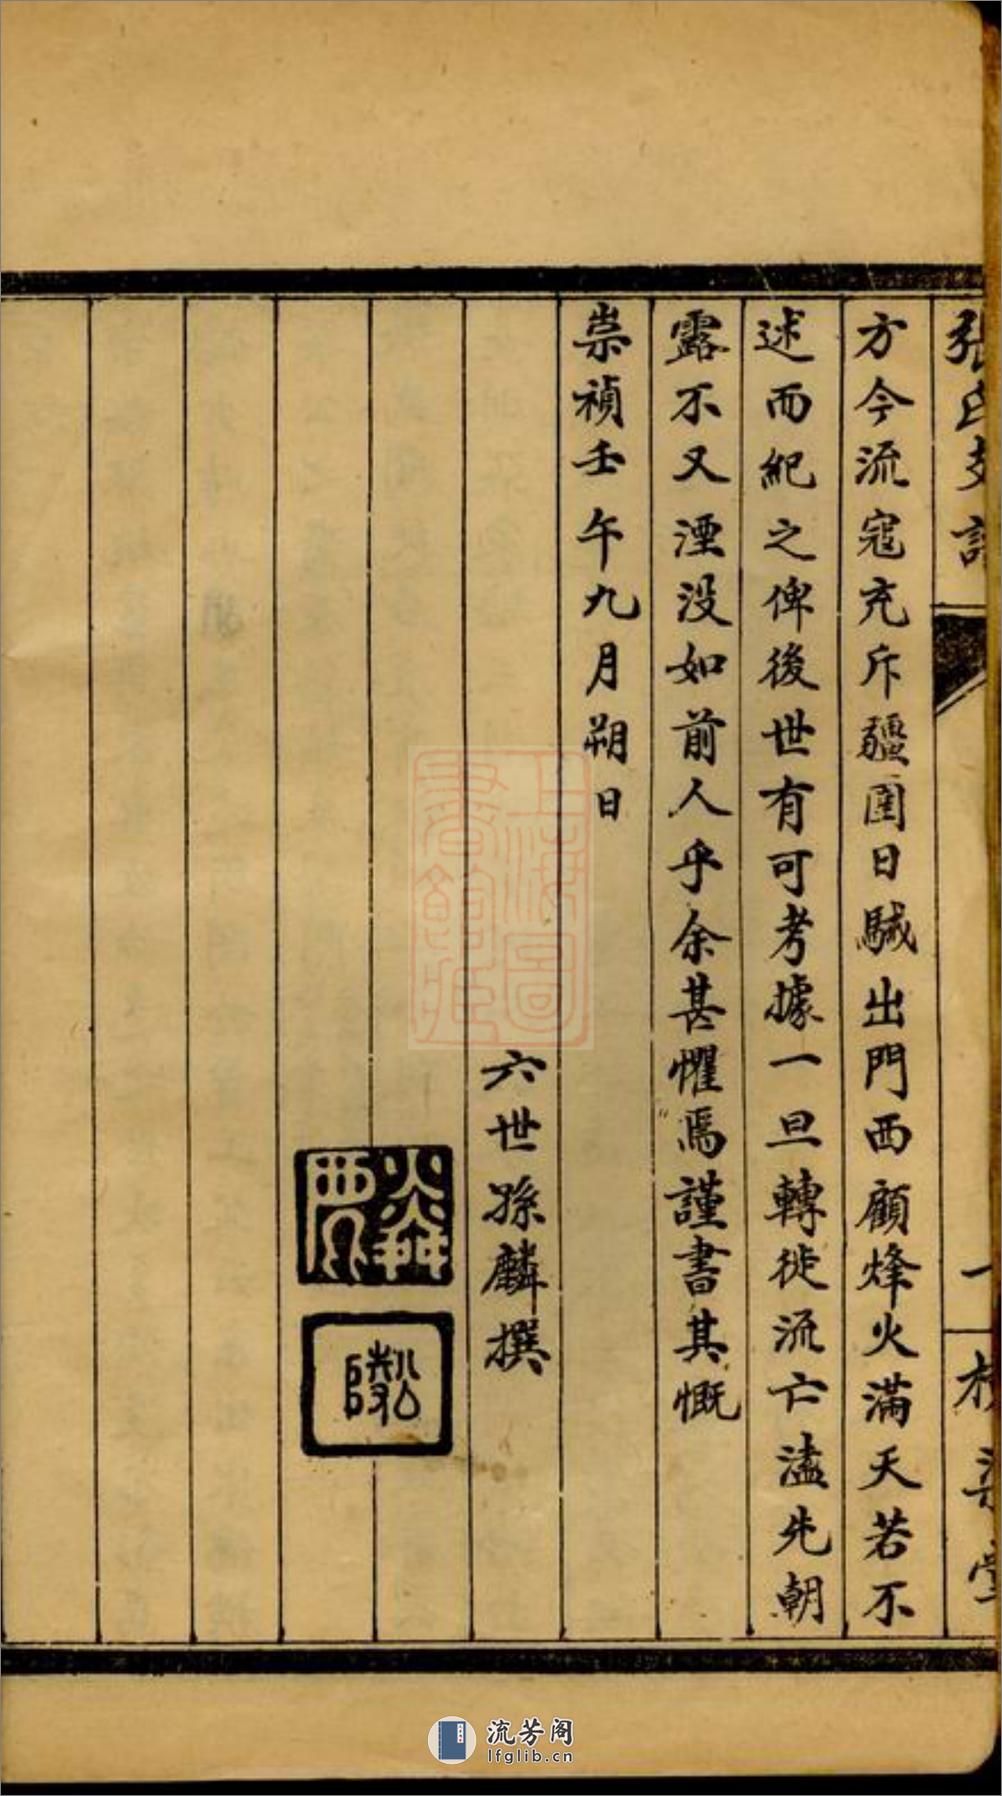 張氏支譜
一
方今流寇充斥疆圉日駴出門西顧烽火滿天若不
述而紀之俾後世有可考據一旦轉徙流亡溘先朝
露不又湮没如前人乎余甚懼焉謹書其慨
崇禎壬午九月朔日
六世孫麟撰
上海圖書館藏
流芳阁
lfglib.cn